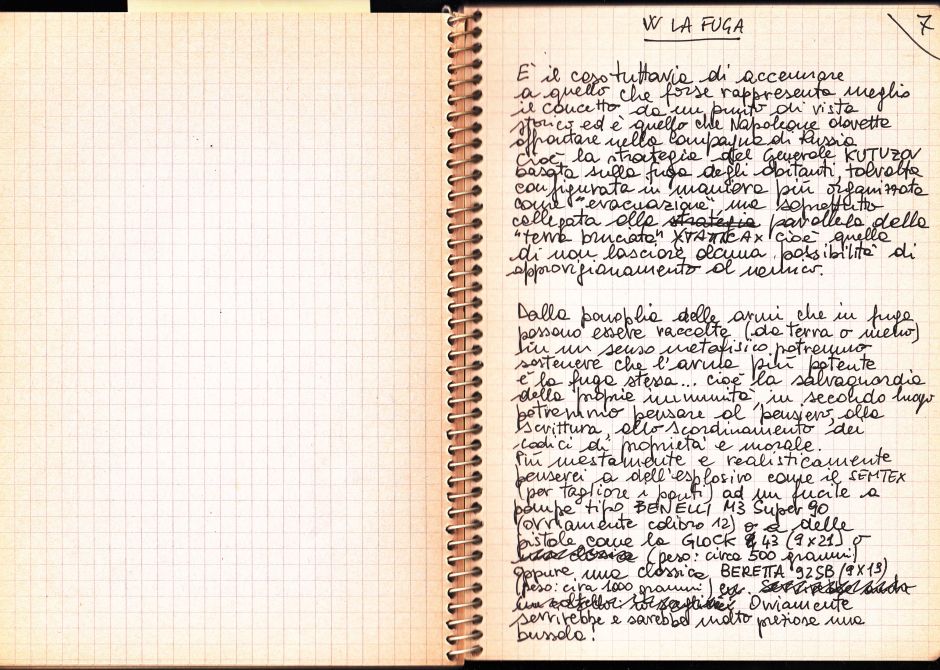 7
W LA FUGA
E' il caso tuttavia di accennare
a quello che forse rappresenta meglio
il concetto da un punto di vista
storico ed è quello che Napoleone dovette
affrontare nella campagna di Russia
cioè la strategia del Generale KUTUZOV
basata sulla fuga degli abitanti, talvolta
configurata in maniera più organizzata
come "evacuazione", ma soprattutto
collegata alla strategia parallela della
"terra bruciata" XTATTICAX cioè quella
di non lasciare alcuna possibilità di
approvigionamento al nemico.
Dalla panoplia delle armi che in fuga
possono essere raccolte (da terra o meno)
in un senso metafisico potremmo
sostenere che l'arma più potente
è la fuga stessa... cioè la salvaguardia
della propria immunità, in secondo luogo
potremmo pensare al pensiero, alla
scrittura, allo scardinamento dei
codici di proprietà e morale.
Più mestamente e realisticamente
penserei a dell'esplosivo come il SEMTEX
(per tagliare i ponti) ad un fucile a
pompa tipo BENELLI M3 Super 90
(ovviamente calibro 12) o a delle
pistole come la GLOCK 43 (9x21) o
una classica (peso: circa 500 grammi)
oppure una classica BERETTA 92SB (9x19)
(peso: circa 1000 grammi)
Ovviamente
servirebbe e sarebbe molto preziosa una
bussola!